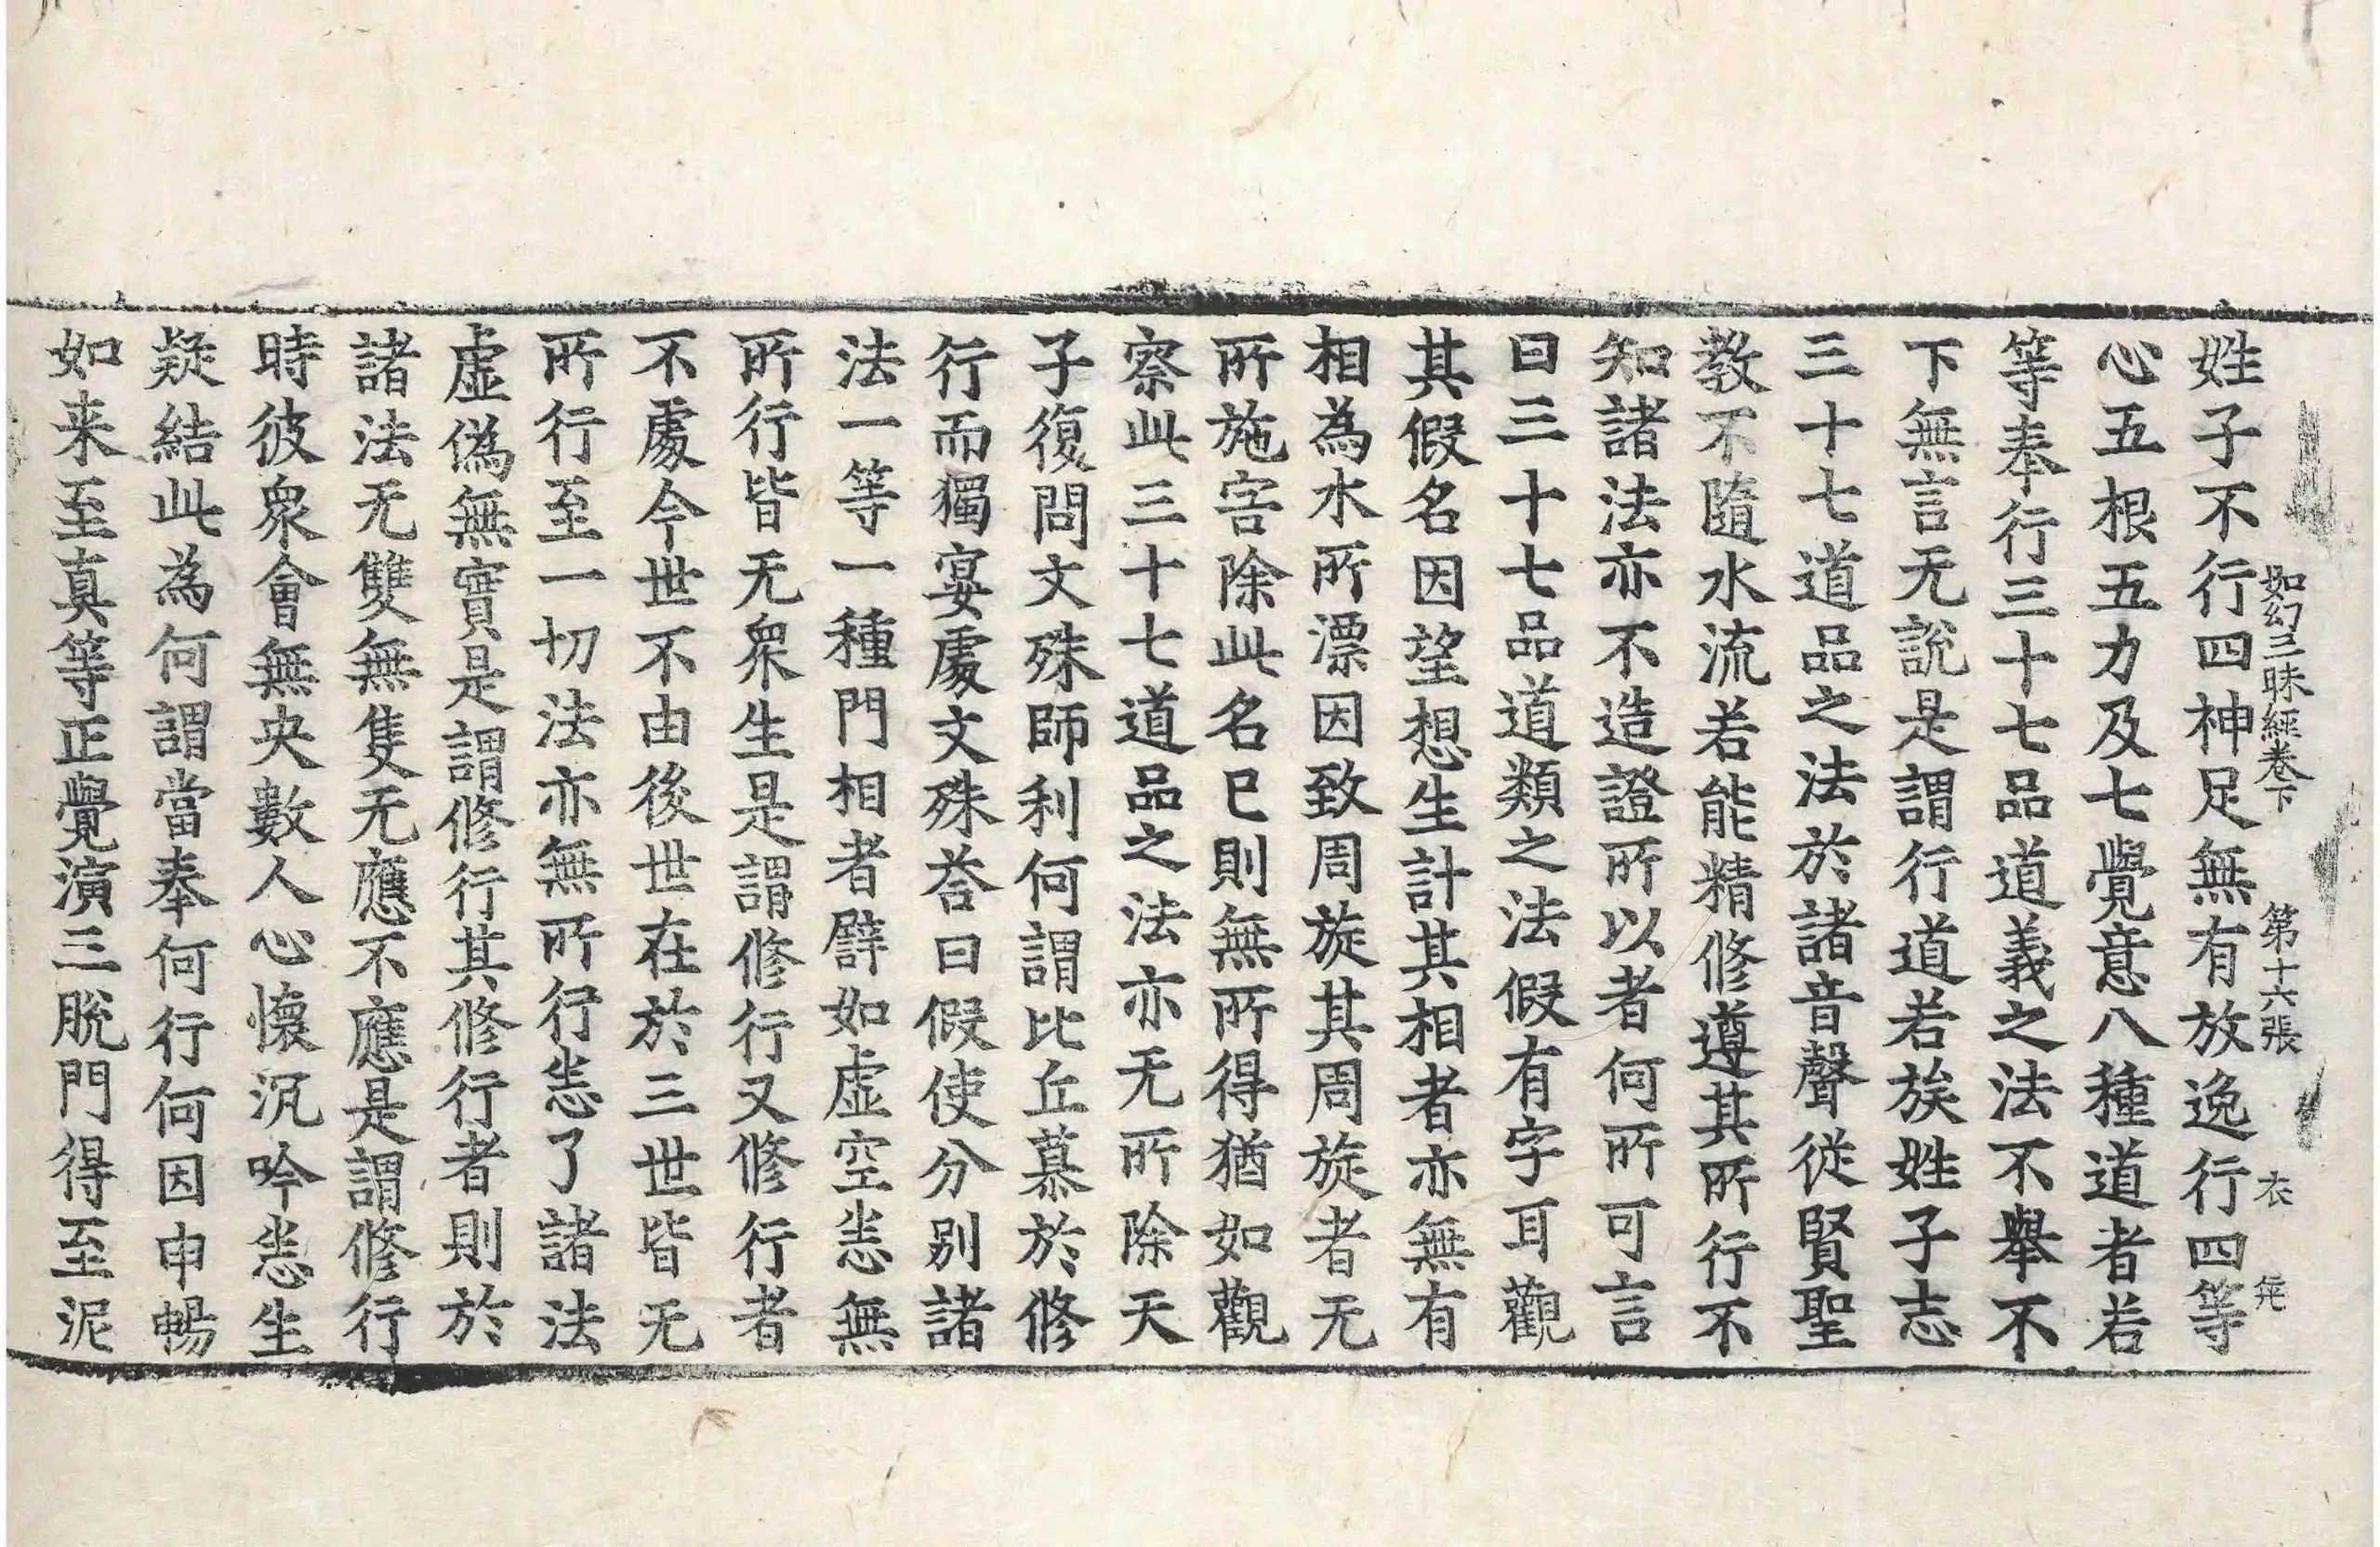 如幻三昧經卷下 第十六張 衣
姓子不行四神足無有放逸行四等
心五根五力及七覺意八種道者若
等奉行三十七品道義之法不舉不
下無言无說是謂行道若族姓子志
三十七道品之法於諸音聲從賢聖
教不隨水流若能精修遵其所行不
知諸法亦不造證所以者何所可言
曰三十七品道類之法假有字耳觀
其假名因望想生計其相者亦無有
相為水所漂因致周旋其周旋者无
所施害除此名已則無所得猶如觀
察此三十七道品之法亦无所除天
子復問文殊師利何謂比丘慕於修
行而獨宴處文殊荅曰假使分别諸
法一等一種門相者譬如虛空悉無
所行皆无衆生是謂修行又修行者
不處今世不由後世在於三世皆无
所行至一切法亦無所行悉了諸法
虛偽無實是謂修行其修行者則於
諸法无雙無隻无應不應是謂修行
時彼衆會無央數人心懷沉吟悉生
疑結此為何謂當奉何行何因申暢
如来至真等正覺演三脫門得至泥